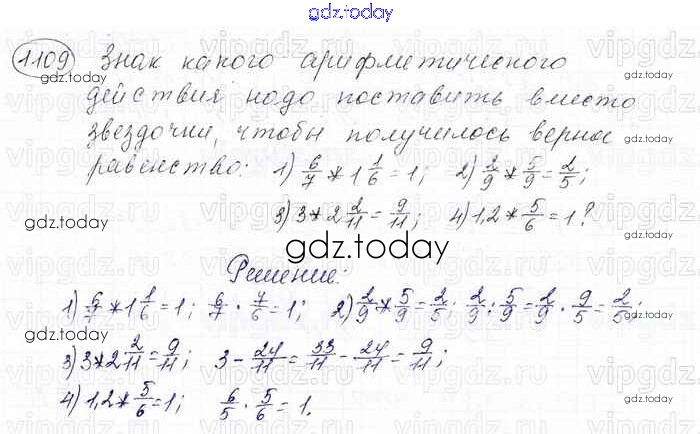 gdz.today
1109 Знак какого арифметического
действия надо поставить вместо
звездочки, чтобы получилось верное
равенство: 1) 6/7 * 1 1/6 = 1; 2) 2/9 * 5/9 = 2/5;
3) 3 * 2 2/11 = 9/11; 4) 1,2 * 5/6 = 1?
gdz.today
Решение:
1) 6/7 * 1 1/6 = 1; 6/7 · 7/6 = 1; 2) 2/9 * 5/9 = 2/5; 2/9 : 5/9 = 2/9 · 9/5 = 2/5;
3) 3 * 2 2/11 = 9/11; 3 - 24/11 = 33/11 - 24/11 = 9/11;
4) 1,2 * 5/6 = 1; 6/5 · 5/6 = 1.